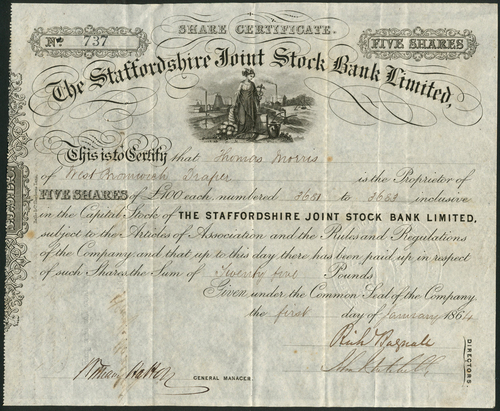 SHARE CERTIFICATE.
No. 737
FIVE SHARES
The Staffordshire Joint Stock Bank Limited,
This is to Certify that Thomas Morris
of West Bromwich Draper is the Proprietor of
FIVE SHARES of £100 each numbered 3651 to inclusive
in the Capital Stock of THE STAFFORDSHIRE JOINT STOCK BANK LIMITED,
subject to the Articles of Association and the Rules and Regulations
of the Company and that up to this day there has been paid up in respect
of such Shares the Sum of Twenty five Pounds
Given under the Common Seal of the Company
the first day of January 1864
Richd Bagnall
GENERAL MANAGER.
DIRECTORS